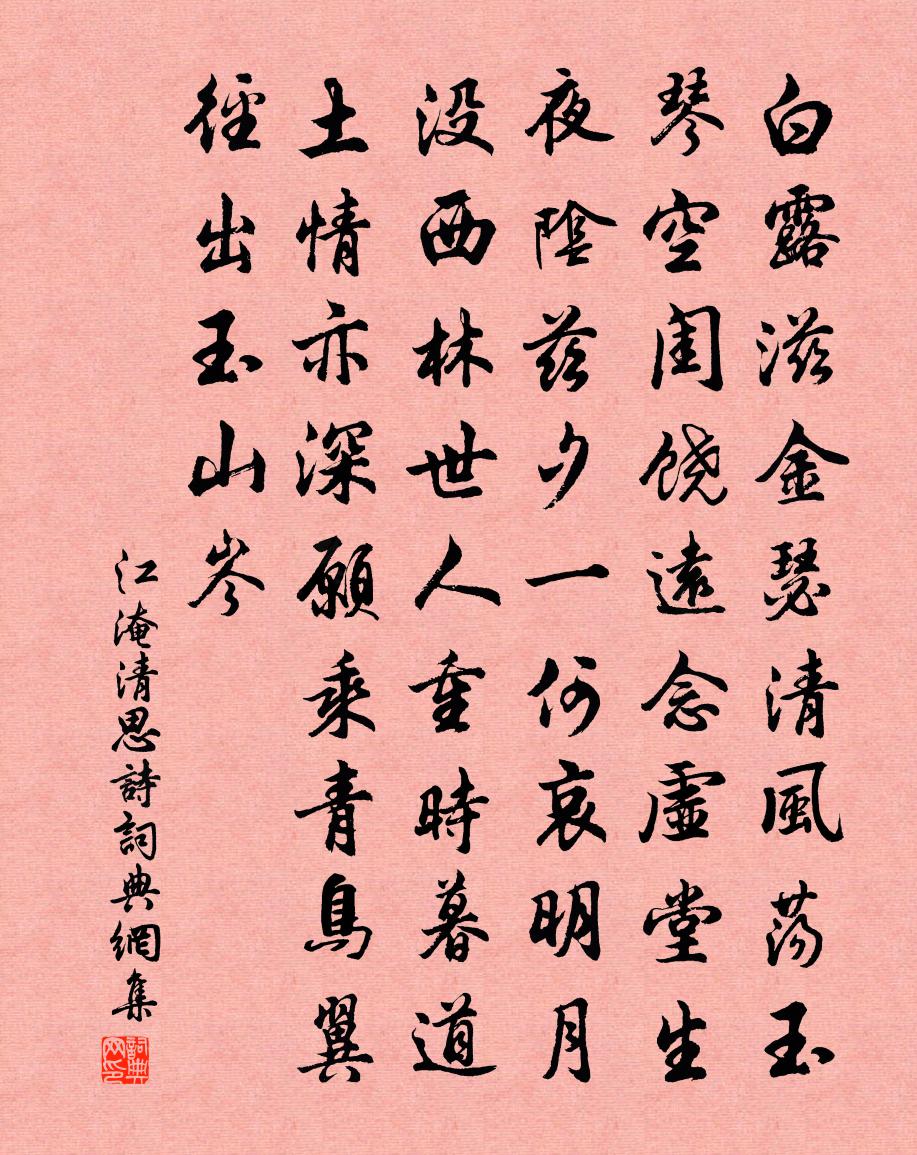 白露滋金瑟清風蕩玉
琴空閨饒遠念虛堂生
夜陰茲夕一何哀明月
没西林世人重時暮道
士情亦深願乘青鳥翼
徑出玉山岑
江淹清思詩詞典網集
詞典网印